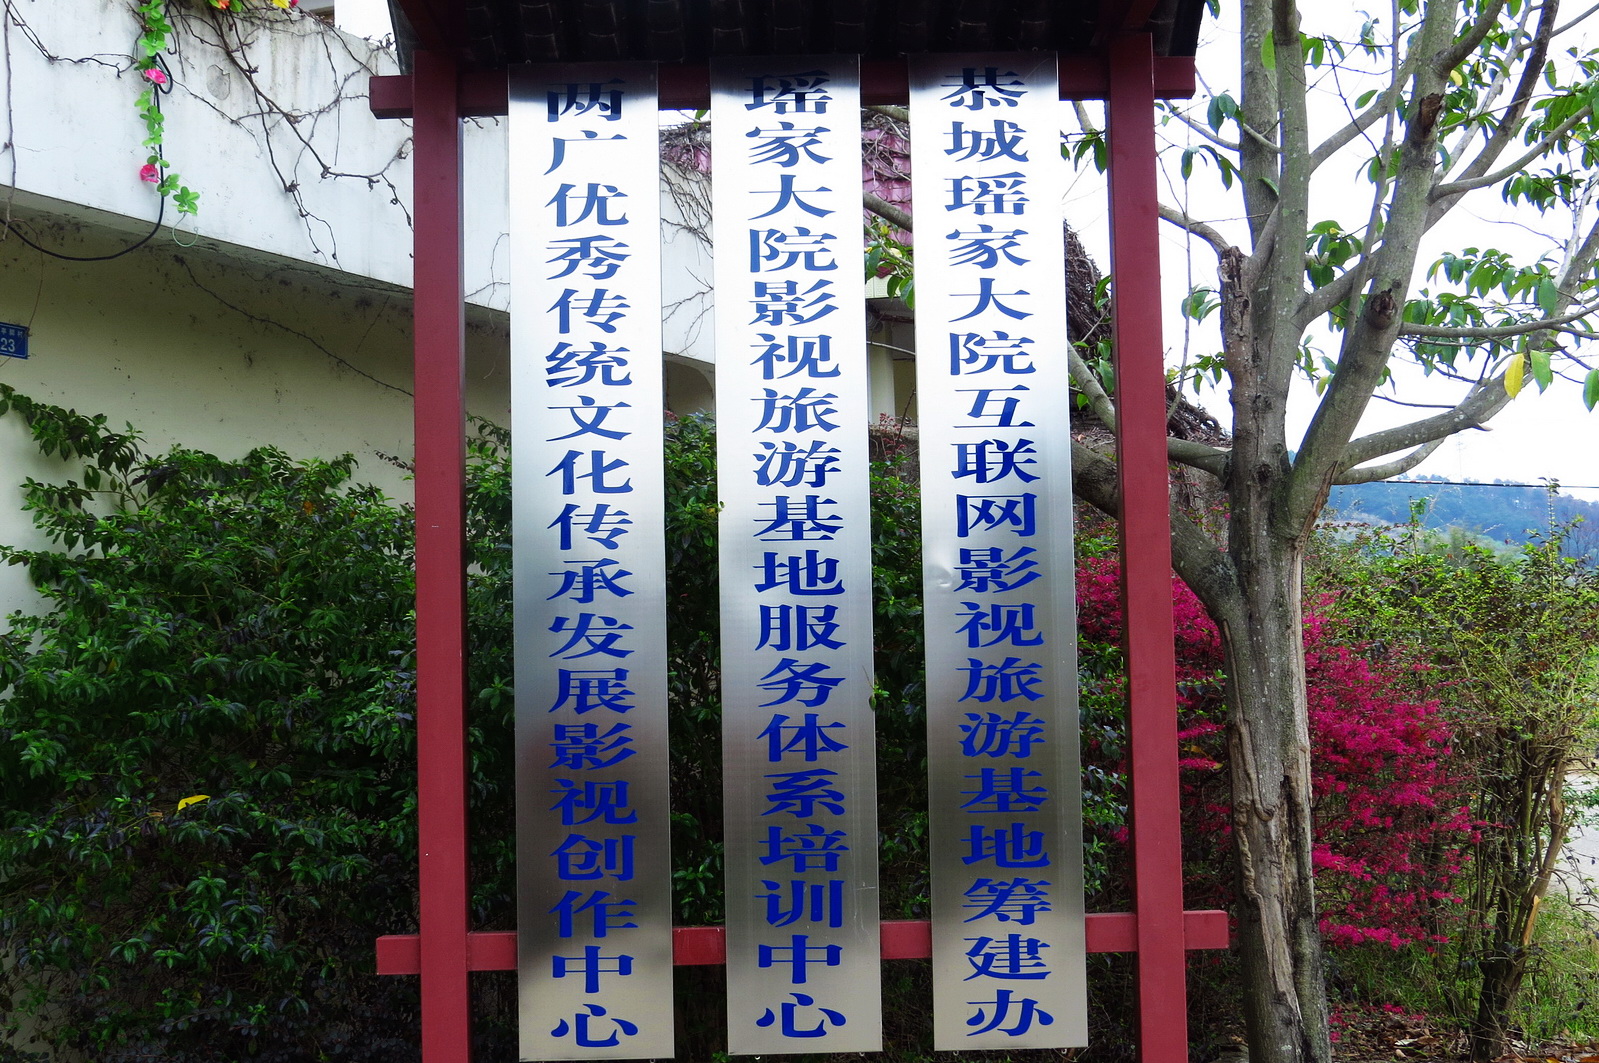 恭城瑶家大院互联网影视旅游基地筹建办
瑶家大院影视旅游基地服务体系培训中心
两广优秀传统文化传承发展影视创作中心
23